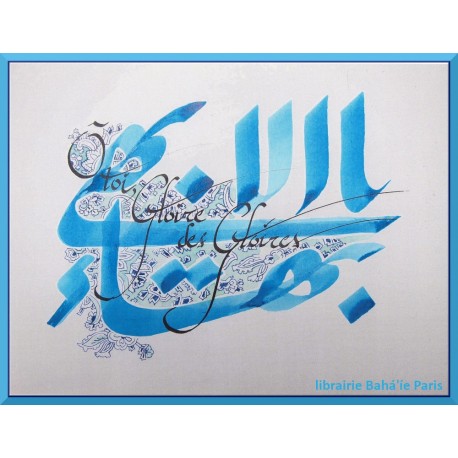 يا بهاء الأبهى
Ô toi,
Gloire
des Gloires
librairie Bahá'íe Paris